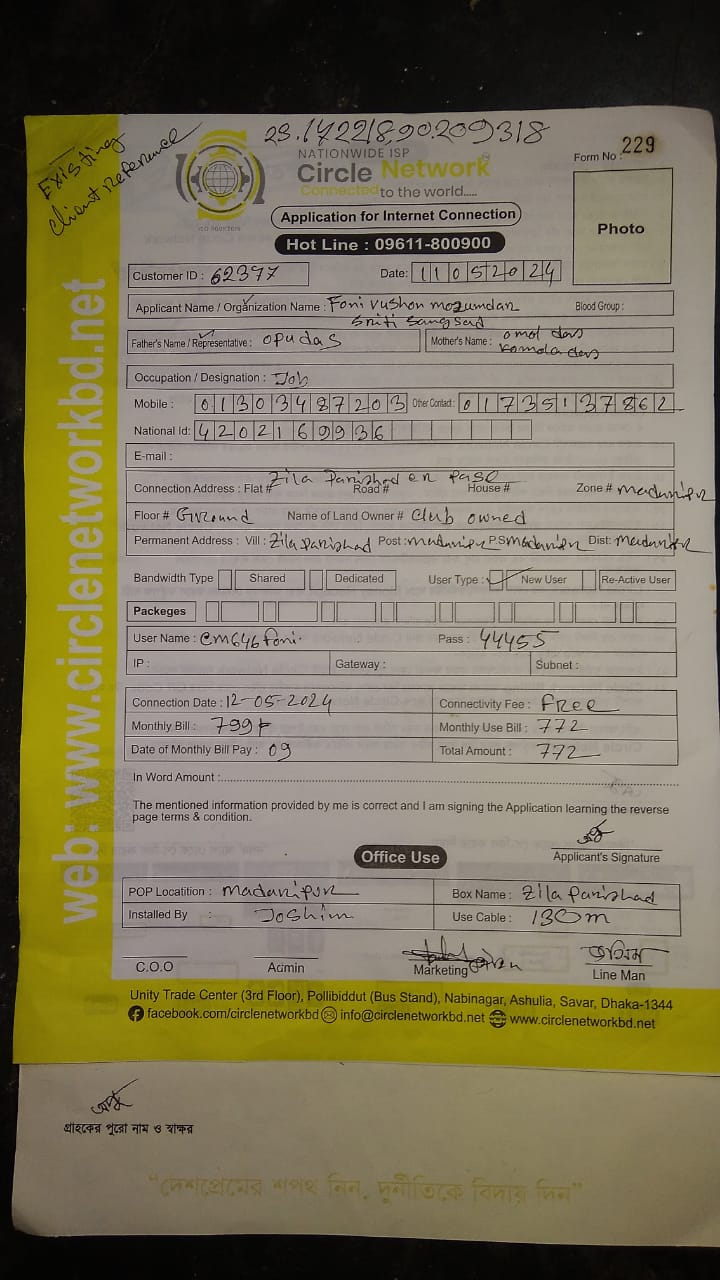 Existing
client reference
23.1722/8,90.209318
NATIONWIDE ISP
Circle Network
Connected to the world.....
Form No : 229
Application for Internet Connection
Hot Line : 09611-800900
Photo
Customer ID : 62397 Date: 11052024
Applicant Name / Organization Name : Foni vushon mozumdar Blood Group :
Sriti Sangsad
Father's Name / Representative : opu das Mother's Name : omol das
Komola das
Occupation / Designation : Job
Mobile : 01303487203 Other Contact : 01735137862
National Id: 4202169936
E-mail :
Connection Address : Flat # Zila Parishad er pase Road # House # Zone # madaripur
Floor # Ground Name of Land Owner # Club owned
Permanent Address : Vill : Zila parishad Post : madaripur P.S madaripur Dist: madaripur
Bandwidth Type Shared Dedicated User Type : ✓ New User Re-Active User
Packeges
User Name : cm646foni. Pass : 44455
IP : Gateway : Subnet :
Connection Date : 12-05-2024 Connectivity Fee : Free
Monthly Bill : 799 Monthly Use Bill : 772
Date of Monthly Bill Pay : 09 Total Amount : 772
In Word Amount :
The mentioned information provided by me is correct and I am signing the Application learning the reverse
page terms & condition.
Applicant's Signature
Office Use
POP Locatition : Madaripur Box Name : Zila parishad
Installed By : Joshim Use Cable : 130m
জসিম
C.O.O Admin Marketing Line Man
Unity Trade Center (3rd Floor), Pollibiddut (Bus Stand), Nabinagar, Ashulia, Savar, Dhaka-1344
facebook.com/circlenetworkbd info@circlenetworkbd.net www.circlenetworkbd.net
web: www.circlenetworkbd.net
অপু
গ্রাহকের পুরো নাম ও স্বাক্ষর
"দেশপ্রেমের শপথ নিন, দুর্নীতিকে বিদায় দিন"